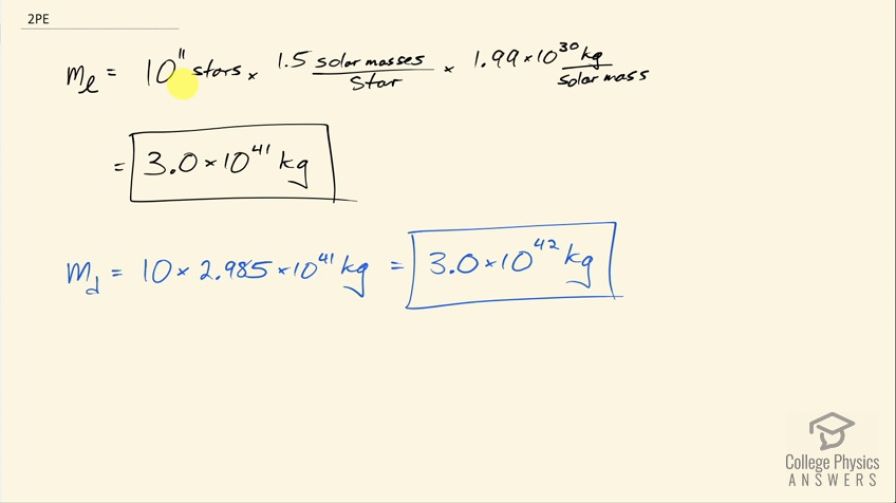 2PE
m_l = 10^11 stars × 1.5 solar masses/star × 1.99×10^30 kg/solar mass
= 3.0×10^41 kg
m_d = 10 × 2.985×10^41 kg = 3.0×10^42 kg
College Physics
ANSWERS